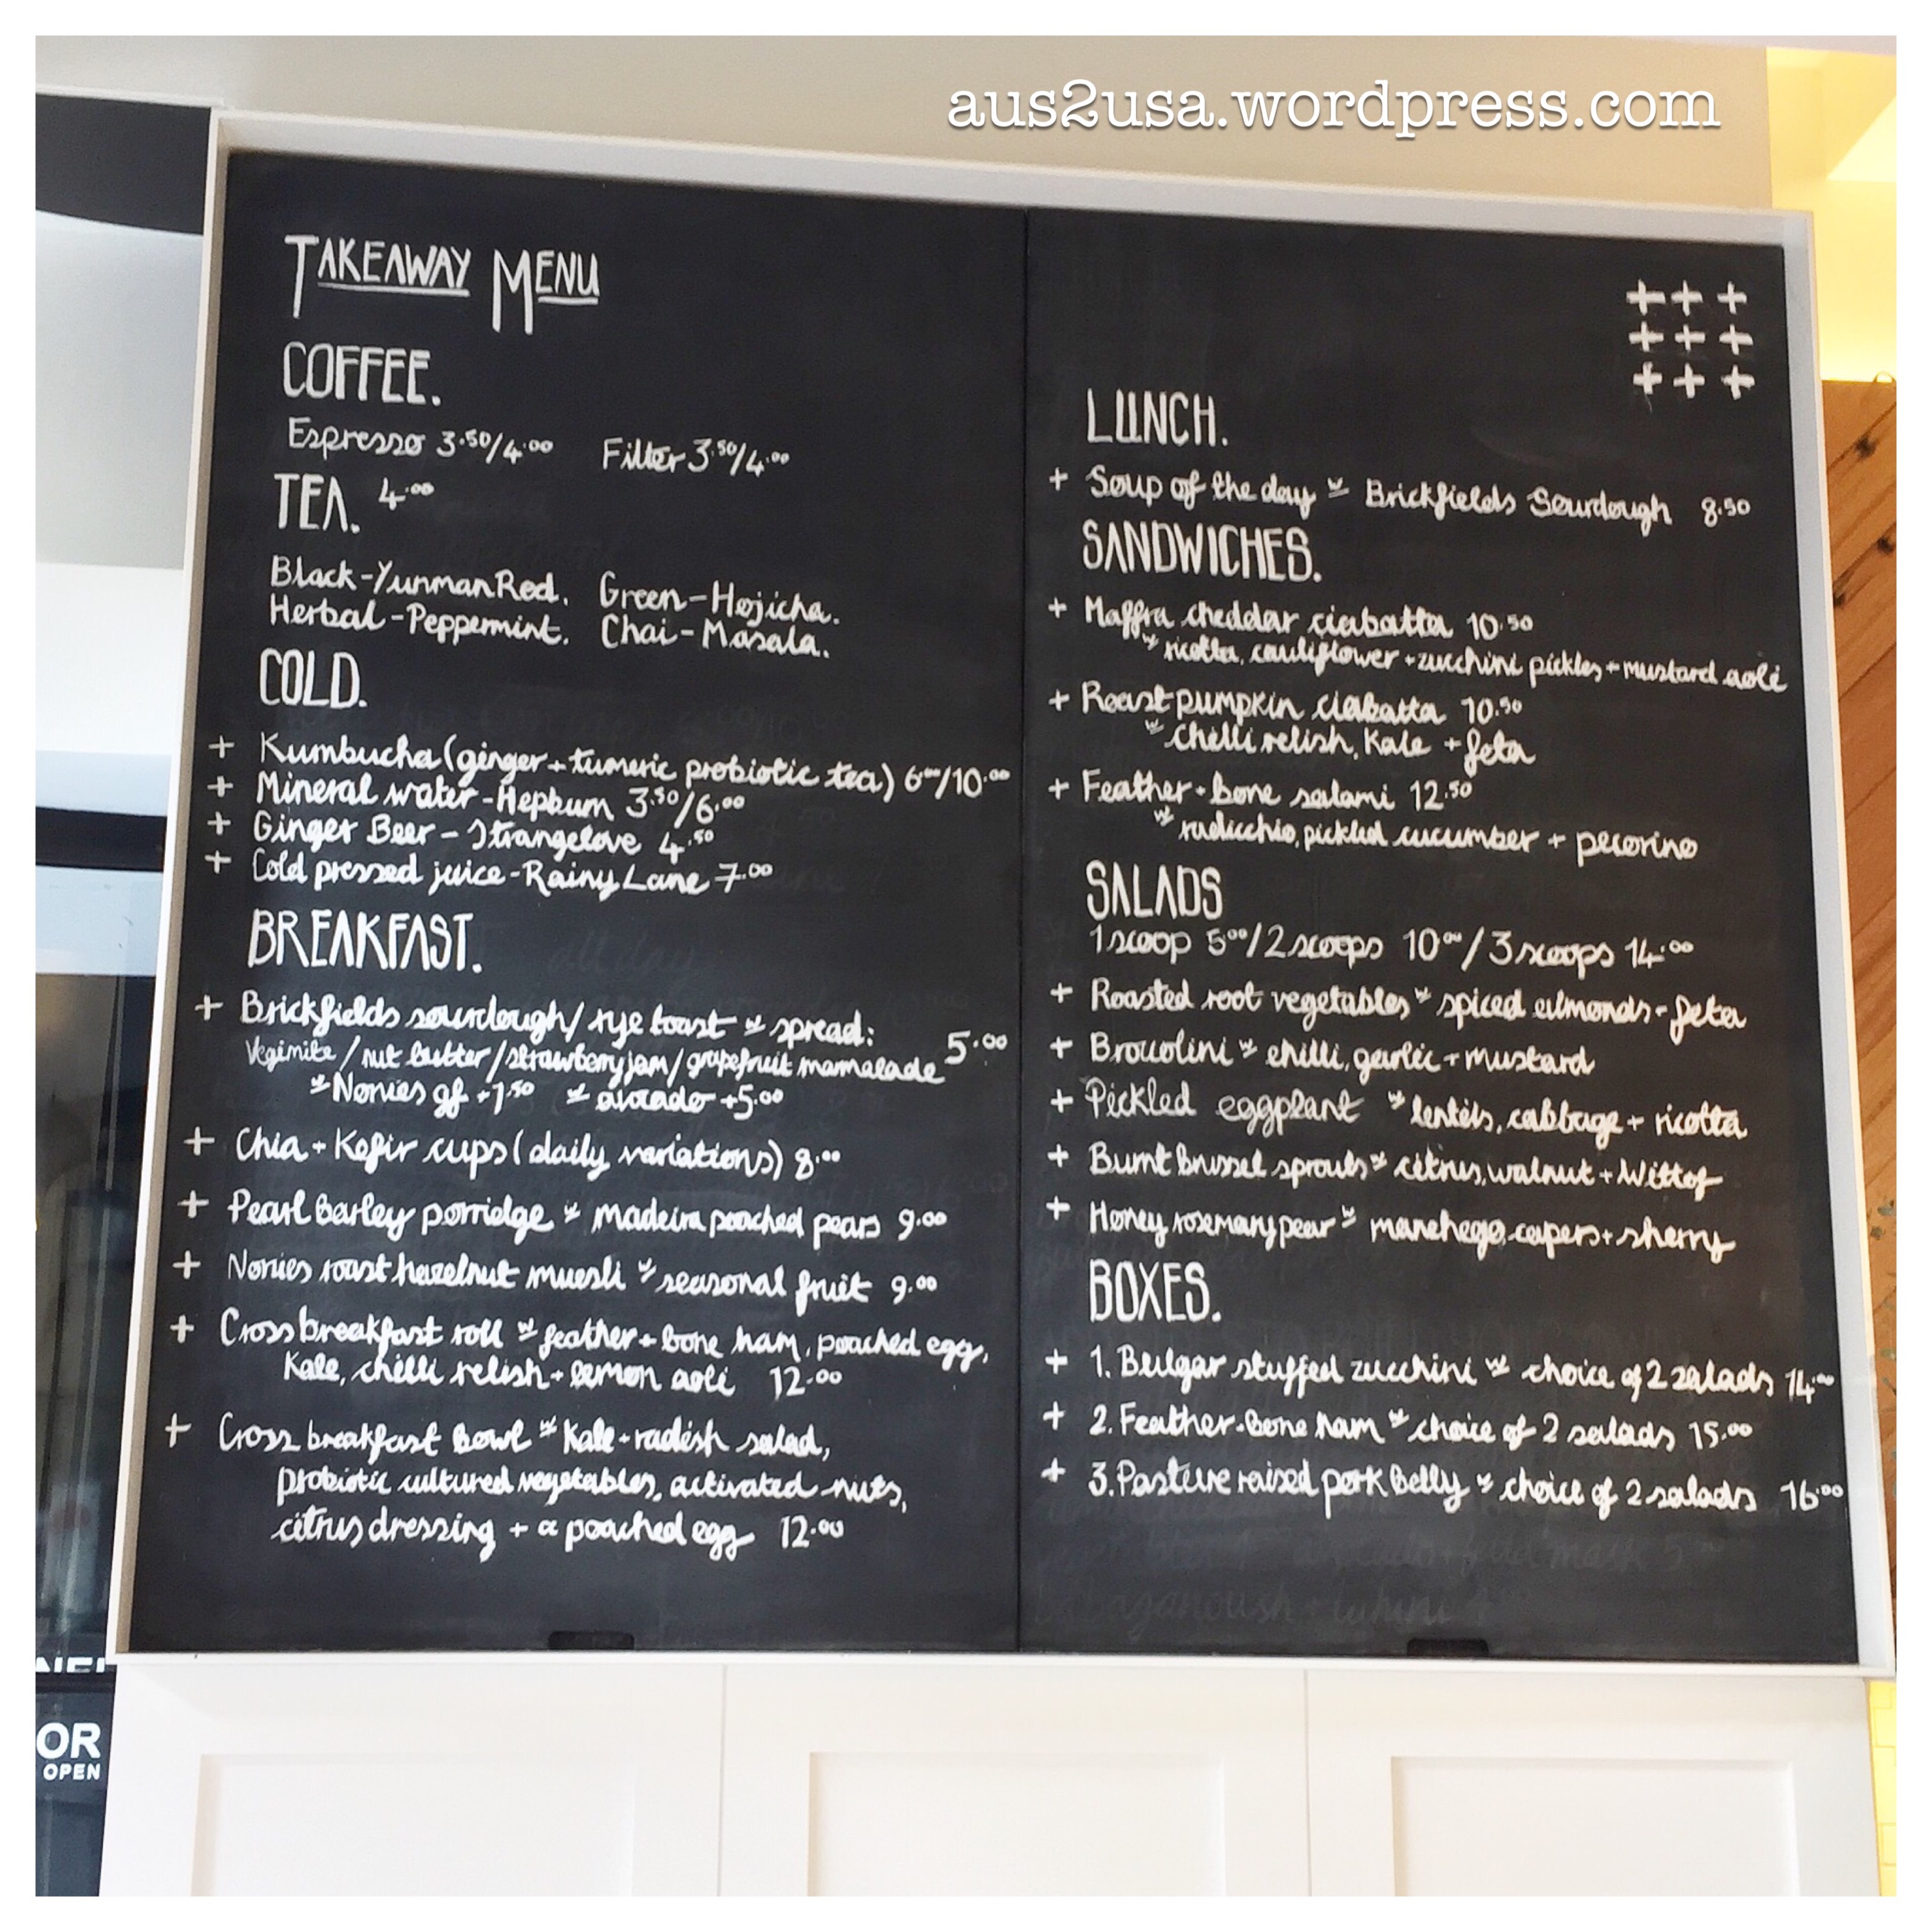 aus2usa.wordpress.com
TAKEAWAY MENU
COFFEE.
Espresso 3.50/4.00 Filter 3.50/4.00
TEA. 4.00
Black-Yunman Red. Green-Hojicha.
Herbal-Peppermint. Chai-Masala.
COLD.
+ Kumbucha (ginger + tumeric probiotic tea) 6.00/10.00
+ Mineral water-Hepburn 3.50/6.00
+ Ginger Beer - Strangelove 4.50
+ Cold pressed juice-Rainy Lane 7.00
BREAKFAST.
all day
+ Brickfields sourdough/rye toast w spread:
Vegimite/nut butter/strawberry jam/grapefruit mamalade 5.00
w Nonies gf +1.50 w avocado +5.00
+ Chia + Kefir cups (daily variations) 8.00
+ Pearl Barley porridge w madeira poached pears 9.00
+ Nonies roast hazelnut muesli w seasonal fruit 9.00
+ Cross breakfast roll w feather + bone ham, poached egg,
Kale, chilli relish + lemon aoli 12.00
+ Cross breakfast Bowl w Kale + radish salad,
probiotic cultured vegetables, activated nuts,
citrus dressing + a poached egg 12.00
LUNCH.
+ Soup of the day w Brickfields Sourdough 8.50
SANDWICHES.
+ Maffra cheddar ciabatta 10.50
w ricotta, cauliflower + zucchini pickles + mustard aoli
+ Roast pumpkin ciabatta 10.50
w chilli relish, Kale + feta
+ Feather + bone salami 12.50
w radicchio, pickled cucumber + pecorino
SALADS
1 scoop 5.00/2 scoops 10.00/3 scoops 14.00
+ Roasted root vegetables w spiced almonds + feta
+ Brocolini w chilli, garlic + mustard
+ Pickled eggplant w lentils, cabbage + ricotta
+ Burnt Brussel sprouts w citrus, walnut + Wittof
+ Honey rosemary pear w manchego, capers + sherry
BOXES.
+ 1. Bulgar stuffed zucchini w choice of 2 salads 14.00
+ 2. Feather + Bone ham w choice of 2 salads 15.00
+ 3. Pasture raised pork Belly w choice of 2 salads 16.00
OR
OPEN